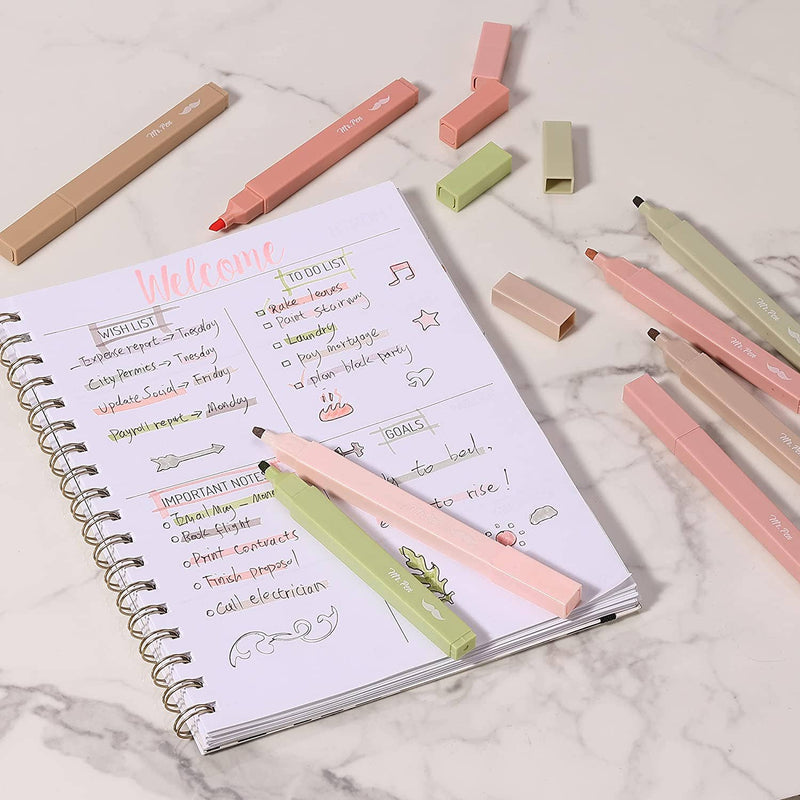 Welcome
WISH LIST
Expense report → Tuesday
City Permies → Tuesday
Update Social → Friday
Payroll report → Monday
TO DO LIST
Rake leaves
Paint Stairway
Laundry
Pay mortgage
plan block party
IMPORTANT NOTES
Email Mug - Mon
Book flight
Print contracts
Finish proposal
Call electrician
GOALS
to bed,
to rise!
Mr. Pen
Mr. Pen
Mr. Pen
Mr. Pen
Mr. Pen
Mr. Pen